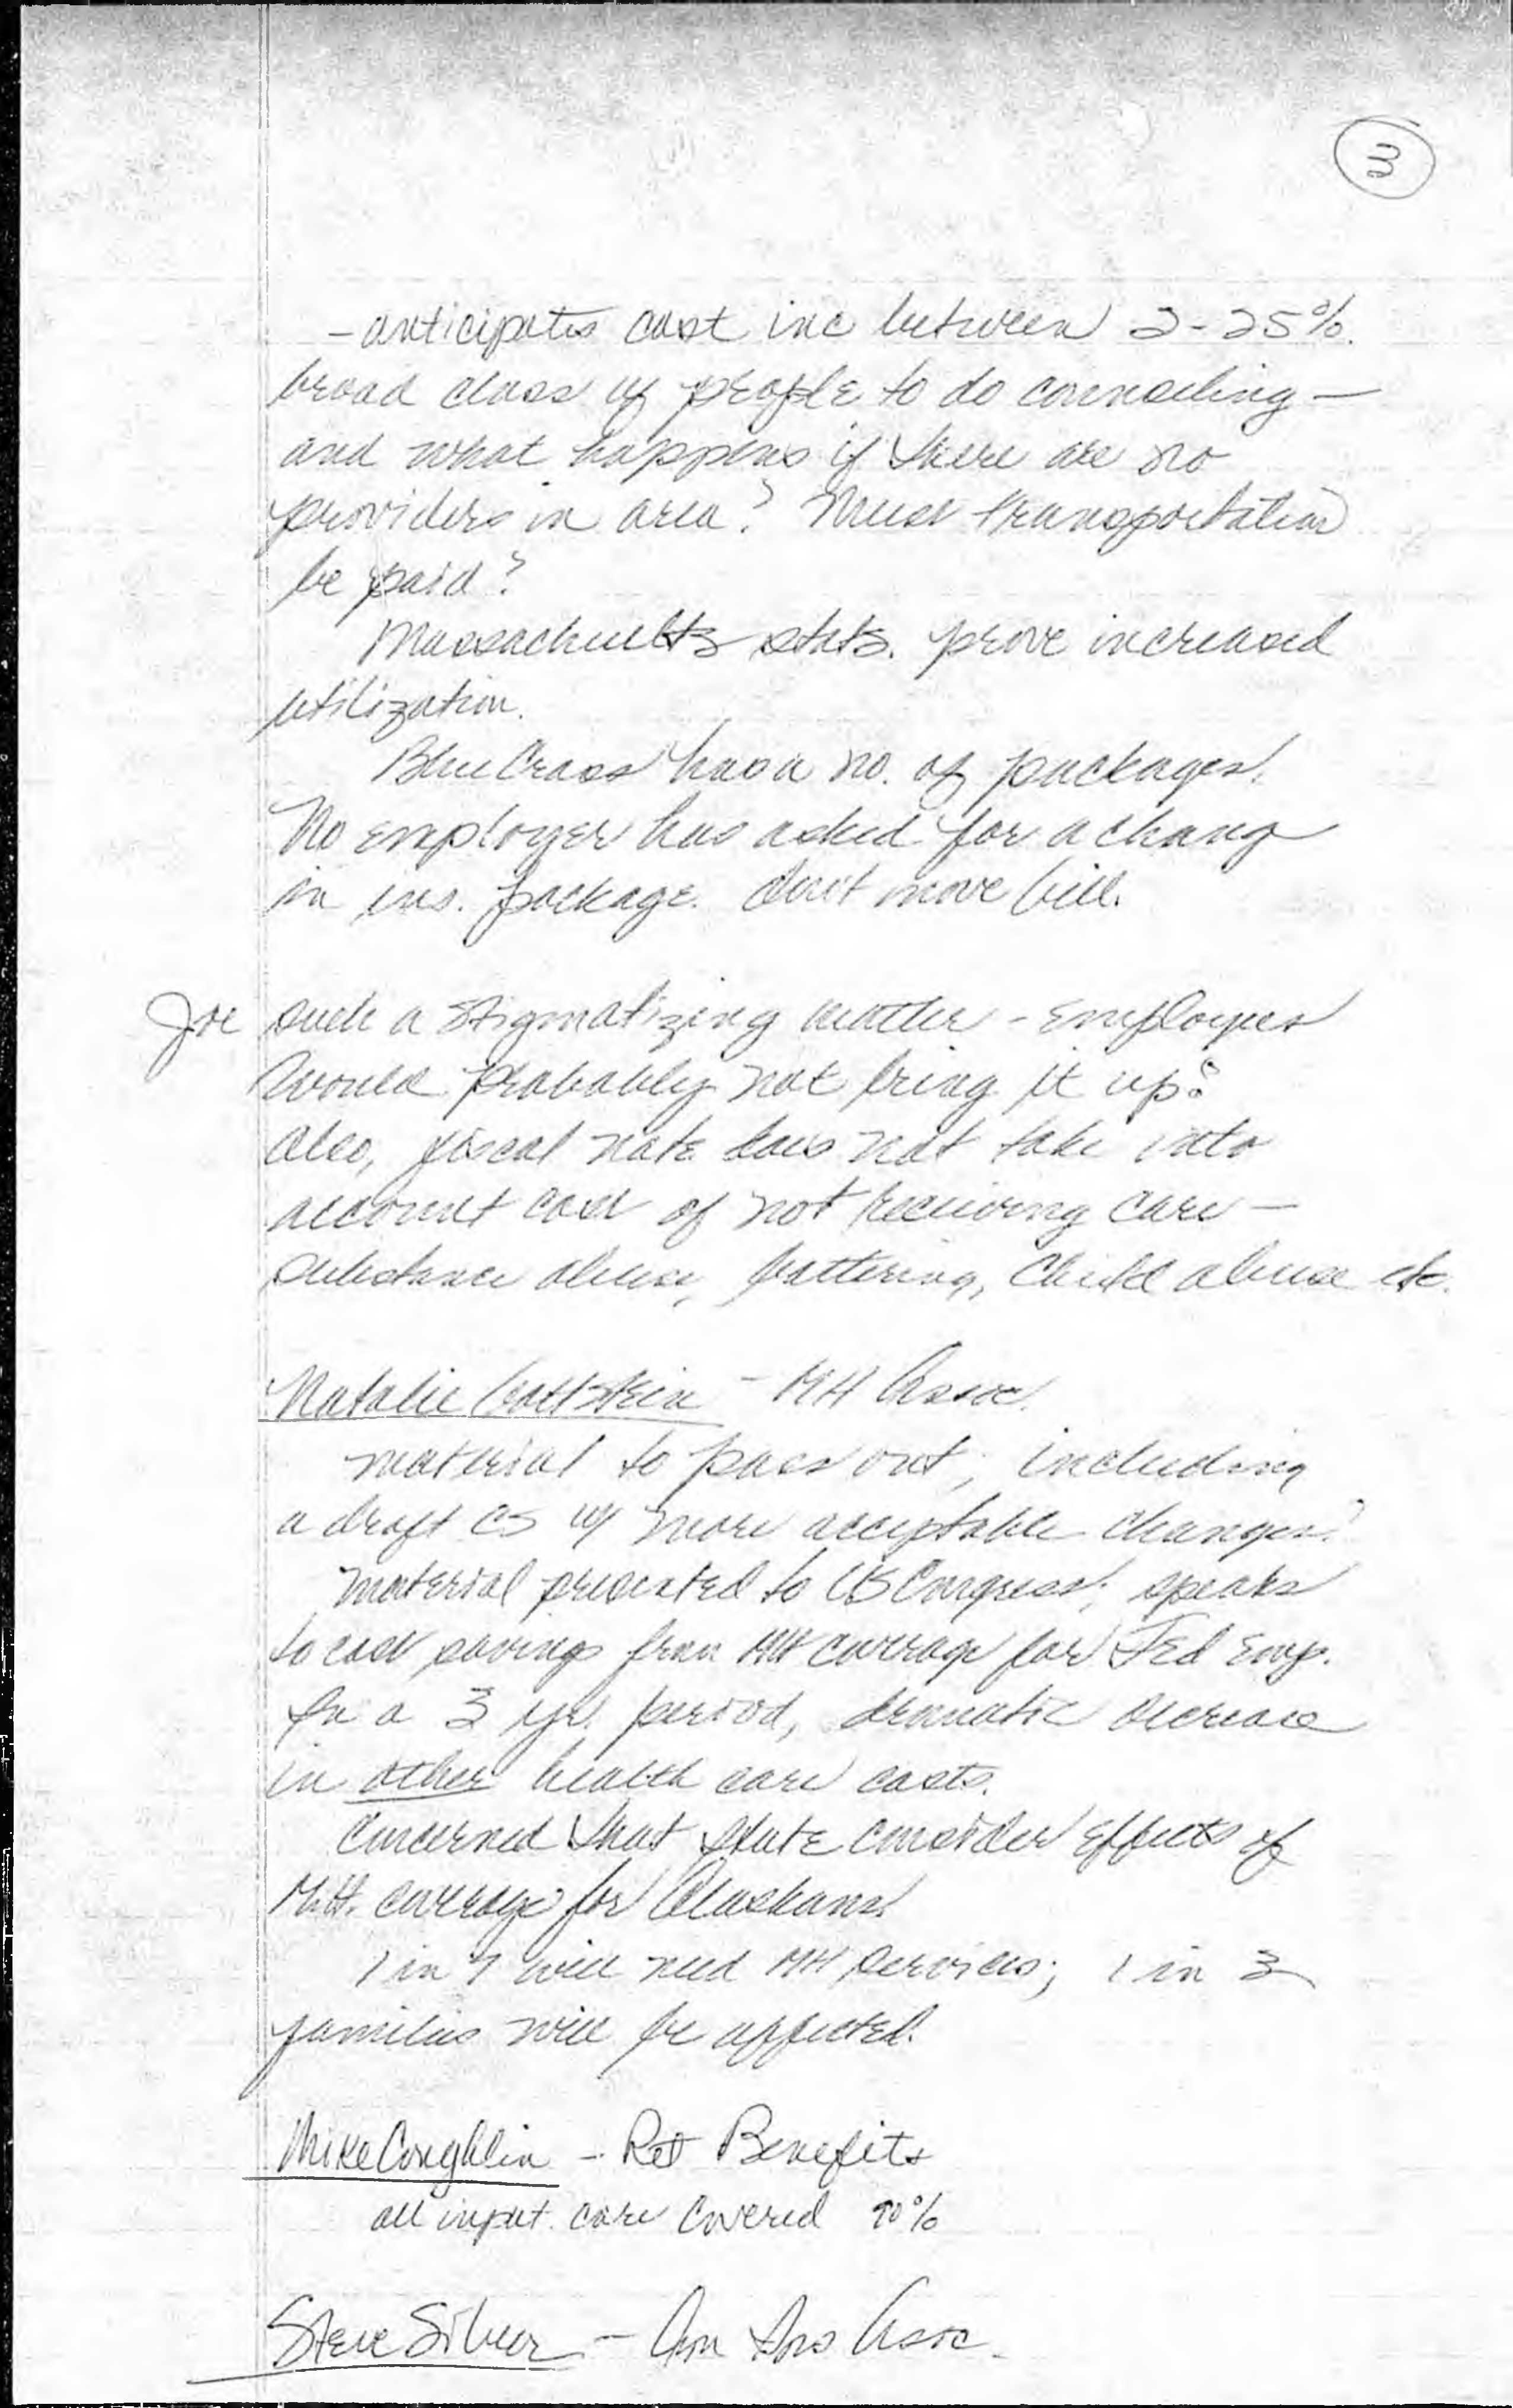 3
- anticipates cost inc between 2-25%.
broad class of people to do counseling —
and what happens if there are no
providers in area? Must transportation
be paid?
Massachusetts stats. prove increased
utilization.
Blue Cross has a no. of packages.
No employer has asked for a change
in ins. package. don't move bill.
Joe such a stigmatizing matter - employees
would probably not bring it up?
Also, fiscal note does not take into
account cost of not receiving care —
substance abuse, battering, child abuse etc.
Natalie Gottstein - MH Assoc.
material to pass out, including
a draft CS w/ more acceptable changes.
Material presented to US Congress; speaks
to cost savings from MH coverage for Fed Emp.
In a 3 yr. period, dramatic decrease
in other health care costs.
Concerned that State consider effects of
M.H. coverage for Alaskans.
1 in will need MH services; 1 in 3
families will be affected.
Mike Coughlin - Ret Benefits
all inpat. care covered 90%
Steve Silver - Am Ins Assoc.